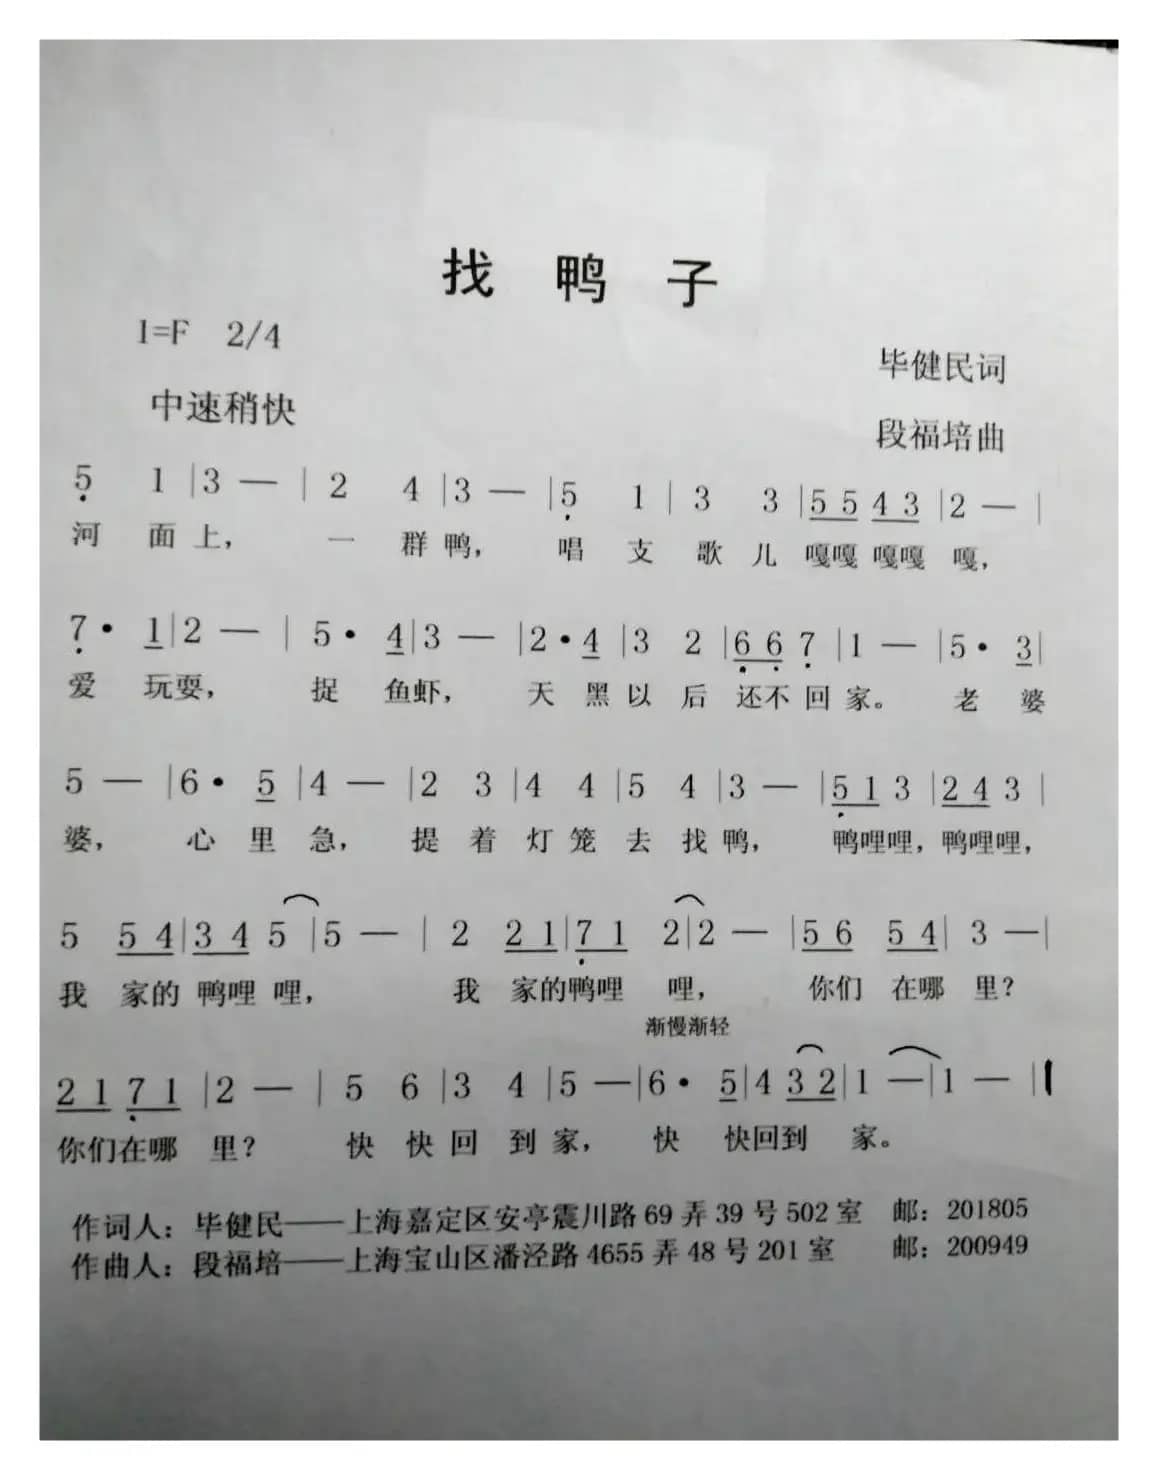 找 鸭 子
1=F 2/4
毕健民词
中速稍快
段福培曲
5̣ 1 |3 — | 2 4 |3 — |5̣ 1 | 3 3 |5 5 4 3 |2 — |
河 面 上， 一 群 鸭， 唱 支 歌 儿 嘎嘎 嘎嘎 嘎，
7̣· 1|2 — | 5· 4|3 — |2·4 |3 2 |6̣ 6̣ 7̣ |1 — |5· 3|
爱 玩耍， 捉 鱼虾， 天 黑 以 后 还不 回 家。 老 婆
5 — |6· 5 |4 — |2 3 |4 4 |5 4 |3 — |5̣ 1 3 |2 4 3 |
婆， 心 里 急， 提 着 灯 笼 去 找 鸭， 鸭哩哩，鸭哩哩，
5 5 4|3 4 5 |5 — | 2 2 1|7̣ 1 2|2 — |5 6 5 4| 3 —|
我 家的 鸭哩 哩， 我 家的鸭哩 哩， 你们 在哪 里？
渐慢渐轻
2 1 7̣ 1 |2 — | 5 6 |3 4 |5 —|6· 5|4 3 2|1 —|1 — ||
你们在哪 里？ 快 快 回 到 家， 快 快回到 家。
作词人：毕健民——上海嘉定区安亭震川路 69 弄 39 号 502 室 邮：201805
作曲人：段福培——上海宝山区潘泾路 4655 弄 48 号 201 室 邮：200949